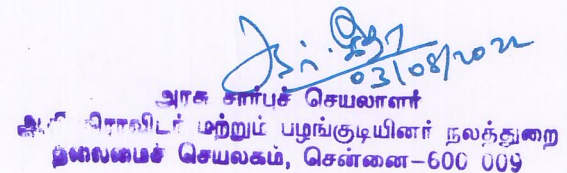 03/08/2022
அரசு சார்புச் செயலாளர்
ஆதி திராவிடர் மற்றும் பழங்குடியினர் நலத்துறை
தலைமைச் செயலகம், சென்னை-600 009